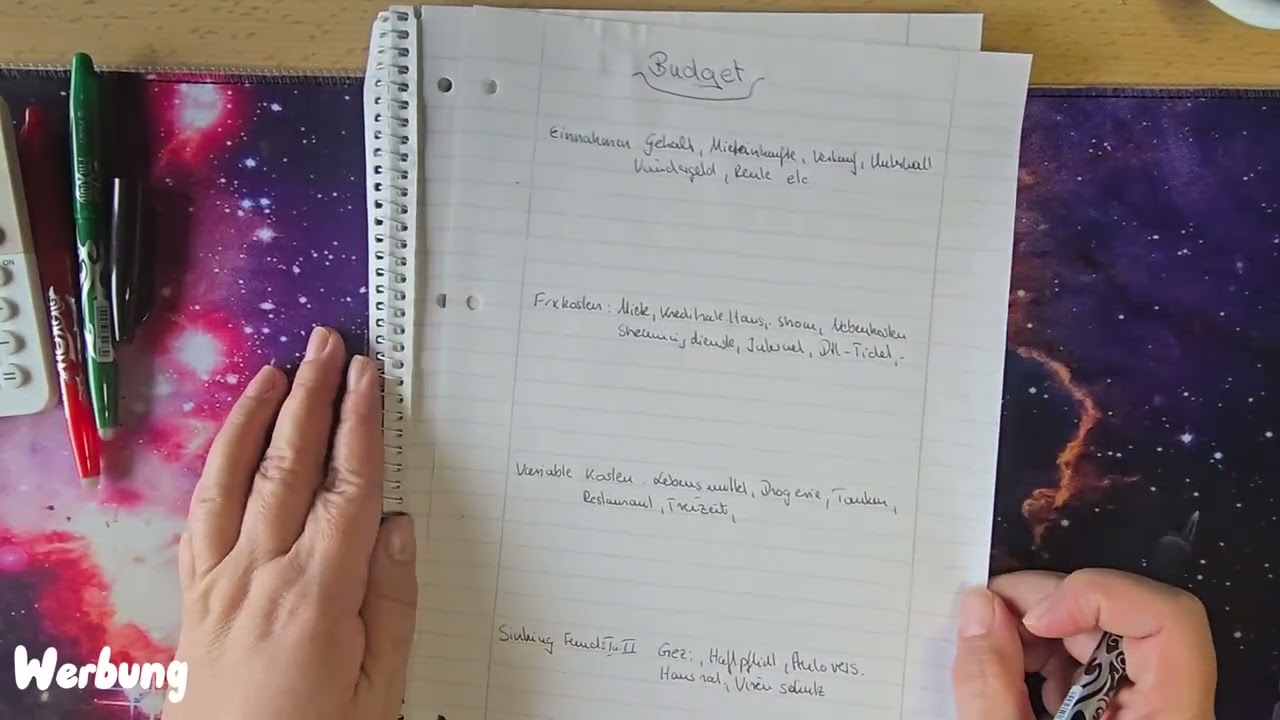 Budget
Einnahmen Gehalt, Mieteinkünfte, Verkauf, Unterhalt
Kindergeld, Rente etc.
Fixkosten: Miete, Kreditrate Haus, Strom, Nebenkosten
Streamingdienste, Internet, DM-Ticket,-
Variable Kosten. Lebensmittel, Drogerie, Tanken,
Restaurant, Freizeit,
Sinking Funds I u. II Gez:, Haftpflicht, Autovers.
Hausrat, Virenschutz
Werbung
ON